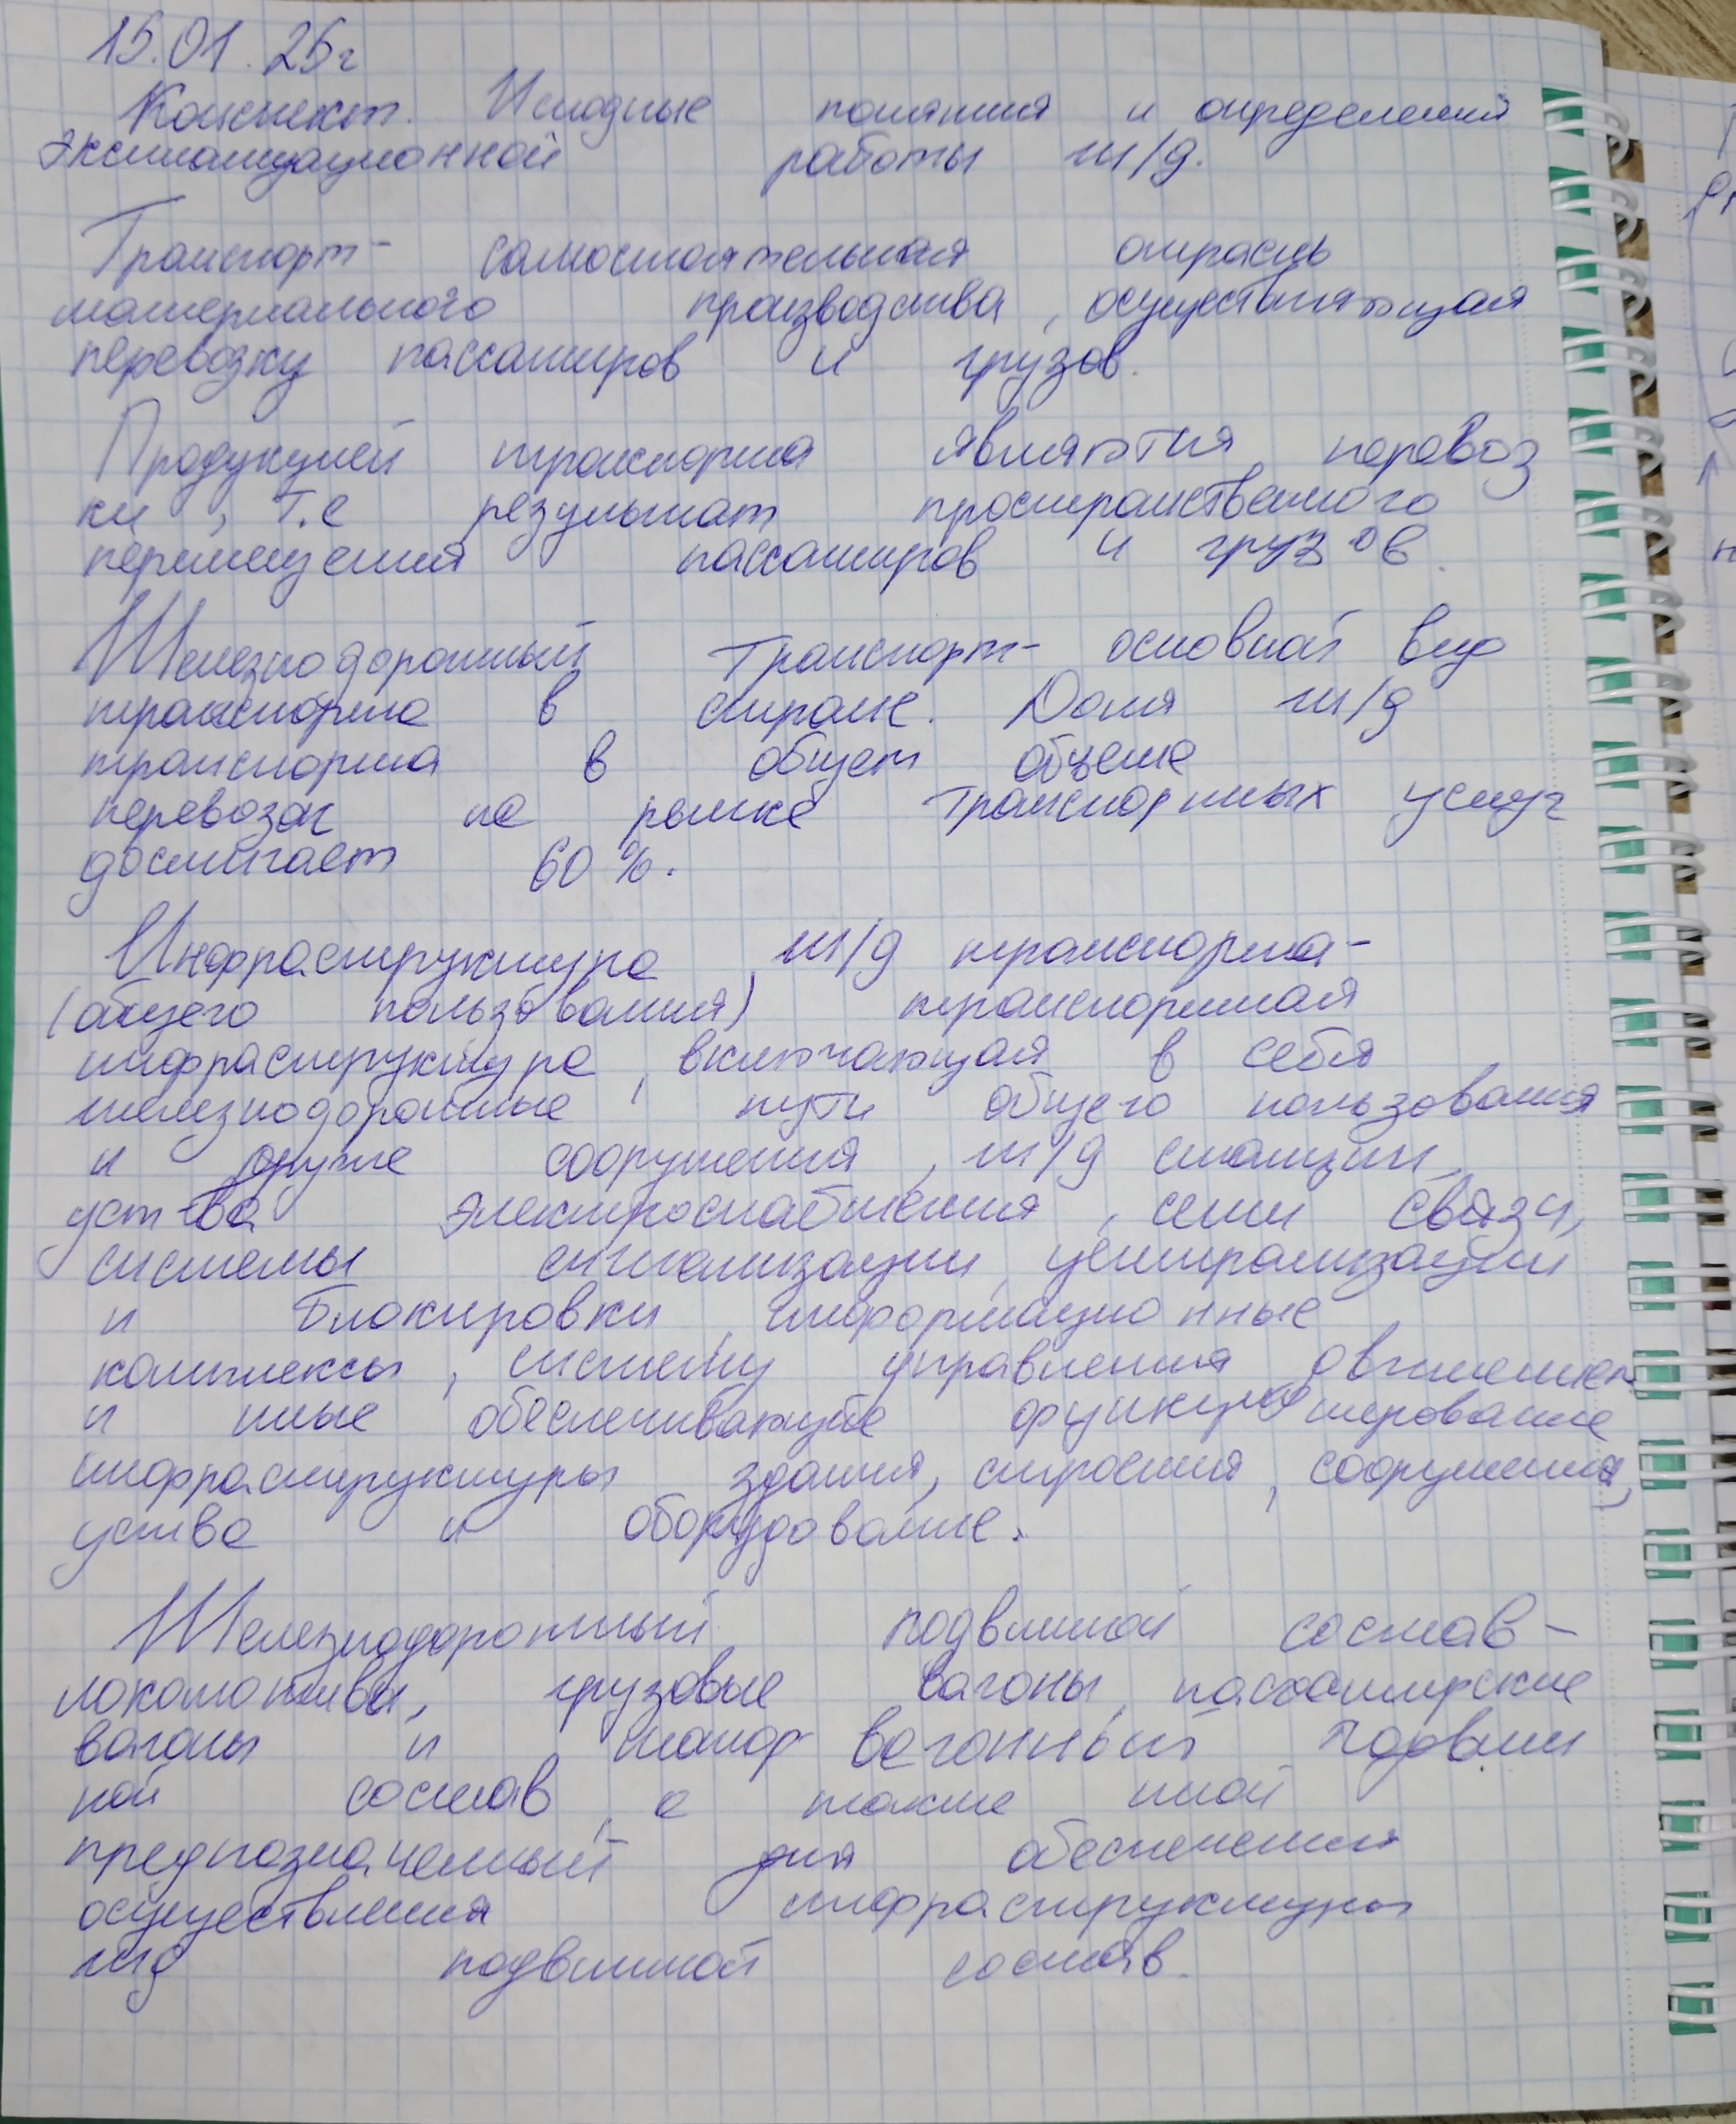 15.01.25г
Конспект. Исходные понятия и определения
эксплоатационной работы ж/д.
Транспорт- самостоятельная отрасль
материального производства, осуществляющая
перевозку пассажиров и грузов.
Продукцией транспорта являются перевоз
ки, т.е результат пространственного
перемещения пассажиров и грузов.
Железнодорожный транспорт- основной вид
транспорта в стране. Доля ж/д
транспорта в общем объеме
перевозок на рынке транспортных услуг
достигает 60%.
Инфраструктура ж/д транспорта-
(общего пользования) транспортная
инфраструктура, включающая в себя
железнодорожные пути общего пользования
и другие сооружения, ж/д станции,
уст-ва электроснабжения, сети связи,
системы сигнализации, централизации
и блокировки, информационные
комплексы, систему управления движением
и иные обеспечивающие функционирование
инфраструктуры здания, строения, сооружения,
уства и оборудование.
Железнодорожный подвижной состав-
локомотивы, грузовые вагоны, пассажирские
вагоны и моторвагонный подвиж
ной состав, а также иной
предназначенный для обеспечения
осуществления инфраструктуры
жд подвижной состав.